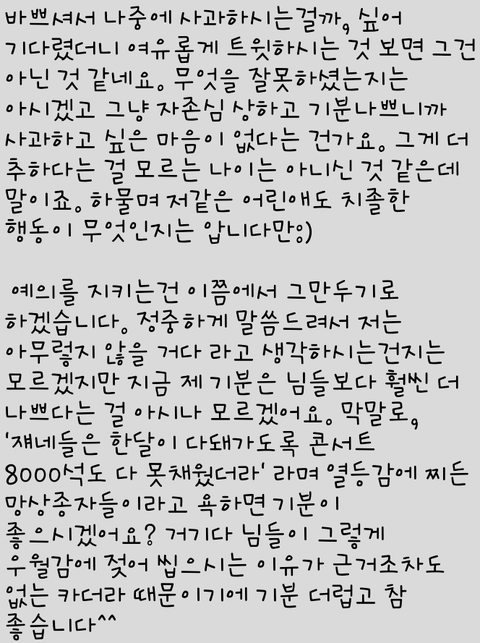 바쁘셔서 나중에 사과하시는걸까, 싶어
기다렸더니 여유롭게 트윗하시는 것 보면 그건
아닌 것 같네요. 무엇을 잘못하셨는지는
아시겠고 그냥 자존심 상하고 기분나쁘니까
사과하고 싶은 마음이 없다는 건가요. 그게 더
추하다는 걸 모르는 나이는 아니신 것 같은데
말이죠. 하물며 저같은 어린애도 치졸한
행동이 무엇인지는 압니다만:)

예의를 지키는건 이쯤에서 그만두기로
하겠습니다. 정중하게 말씀드려서 저는
아무렇지 않을 거다 라고 생각하시는건지는
모르겠지만 지금 제 기분은 님들보다 훨씬 더
나쁘다는 걸 아시나 모르겠어요. 막말로,
'쟤네들은 한달이 다돼가도록 콘서트
8000석도 다 못채웠더라' 라며 열등감에 찌든
망상종자들이라고 욕하면 기분이
좋으시겠어요? 거기다 님들이 그렇게
우월감에 젖어 씹으시는 이유가 근거조차도
없는 카더라 때문이기에 기분 더럽고 참
좋습니다^^